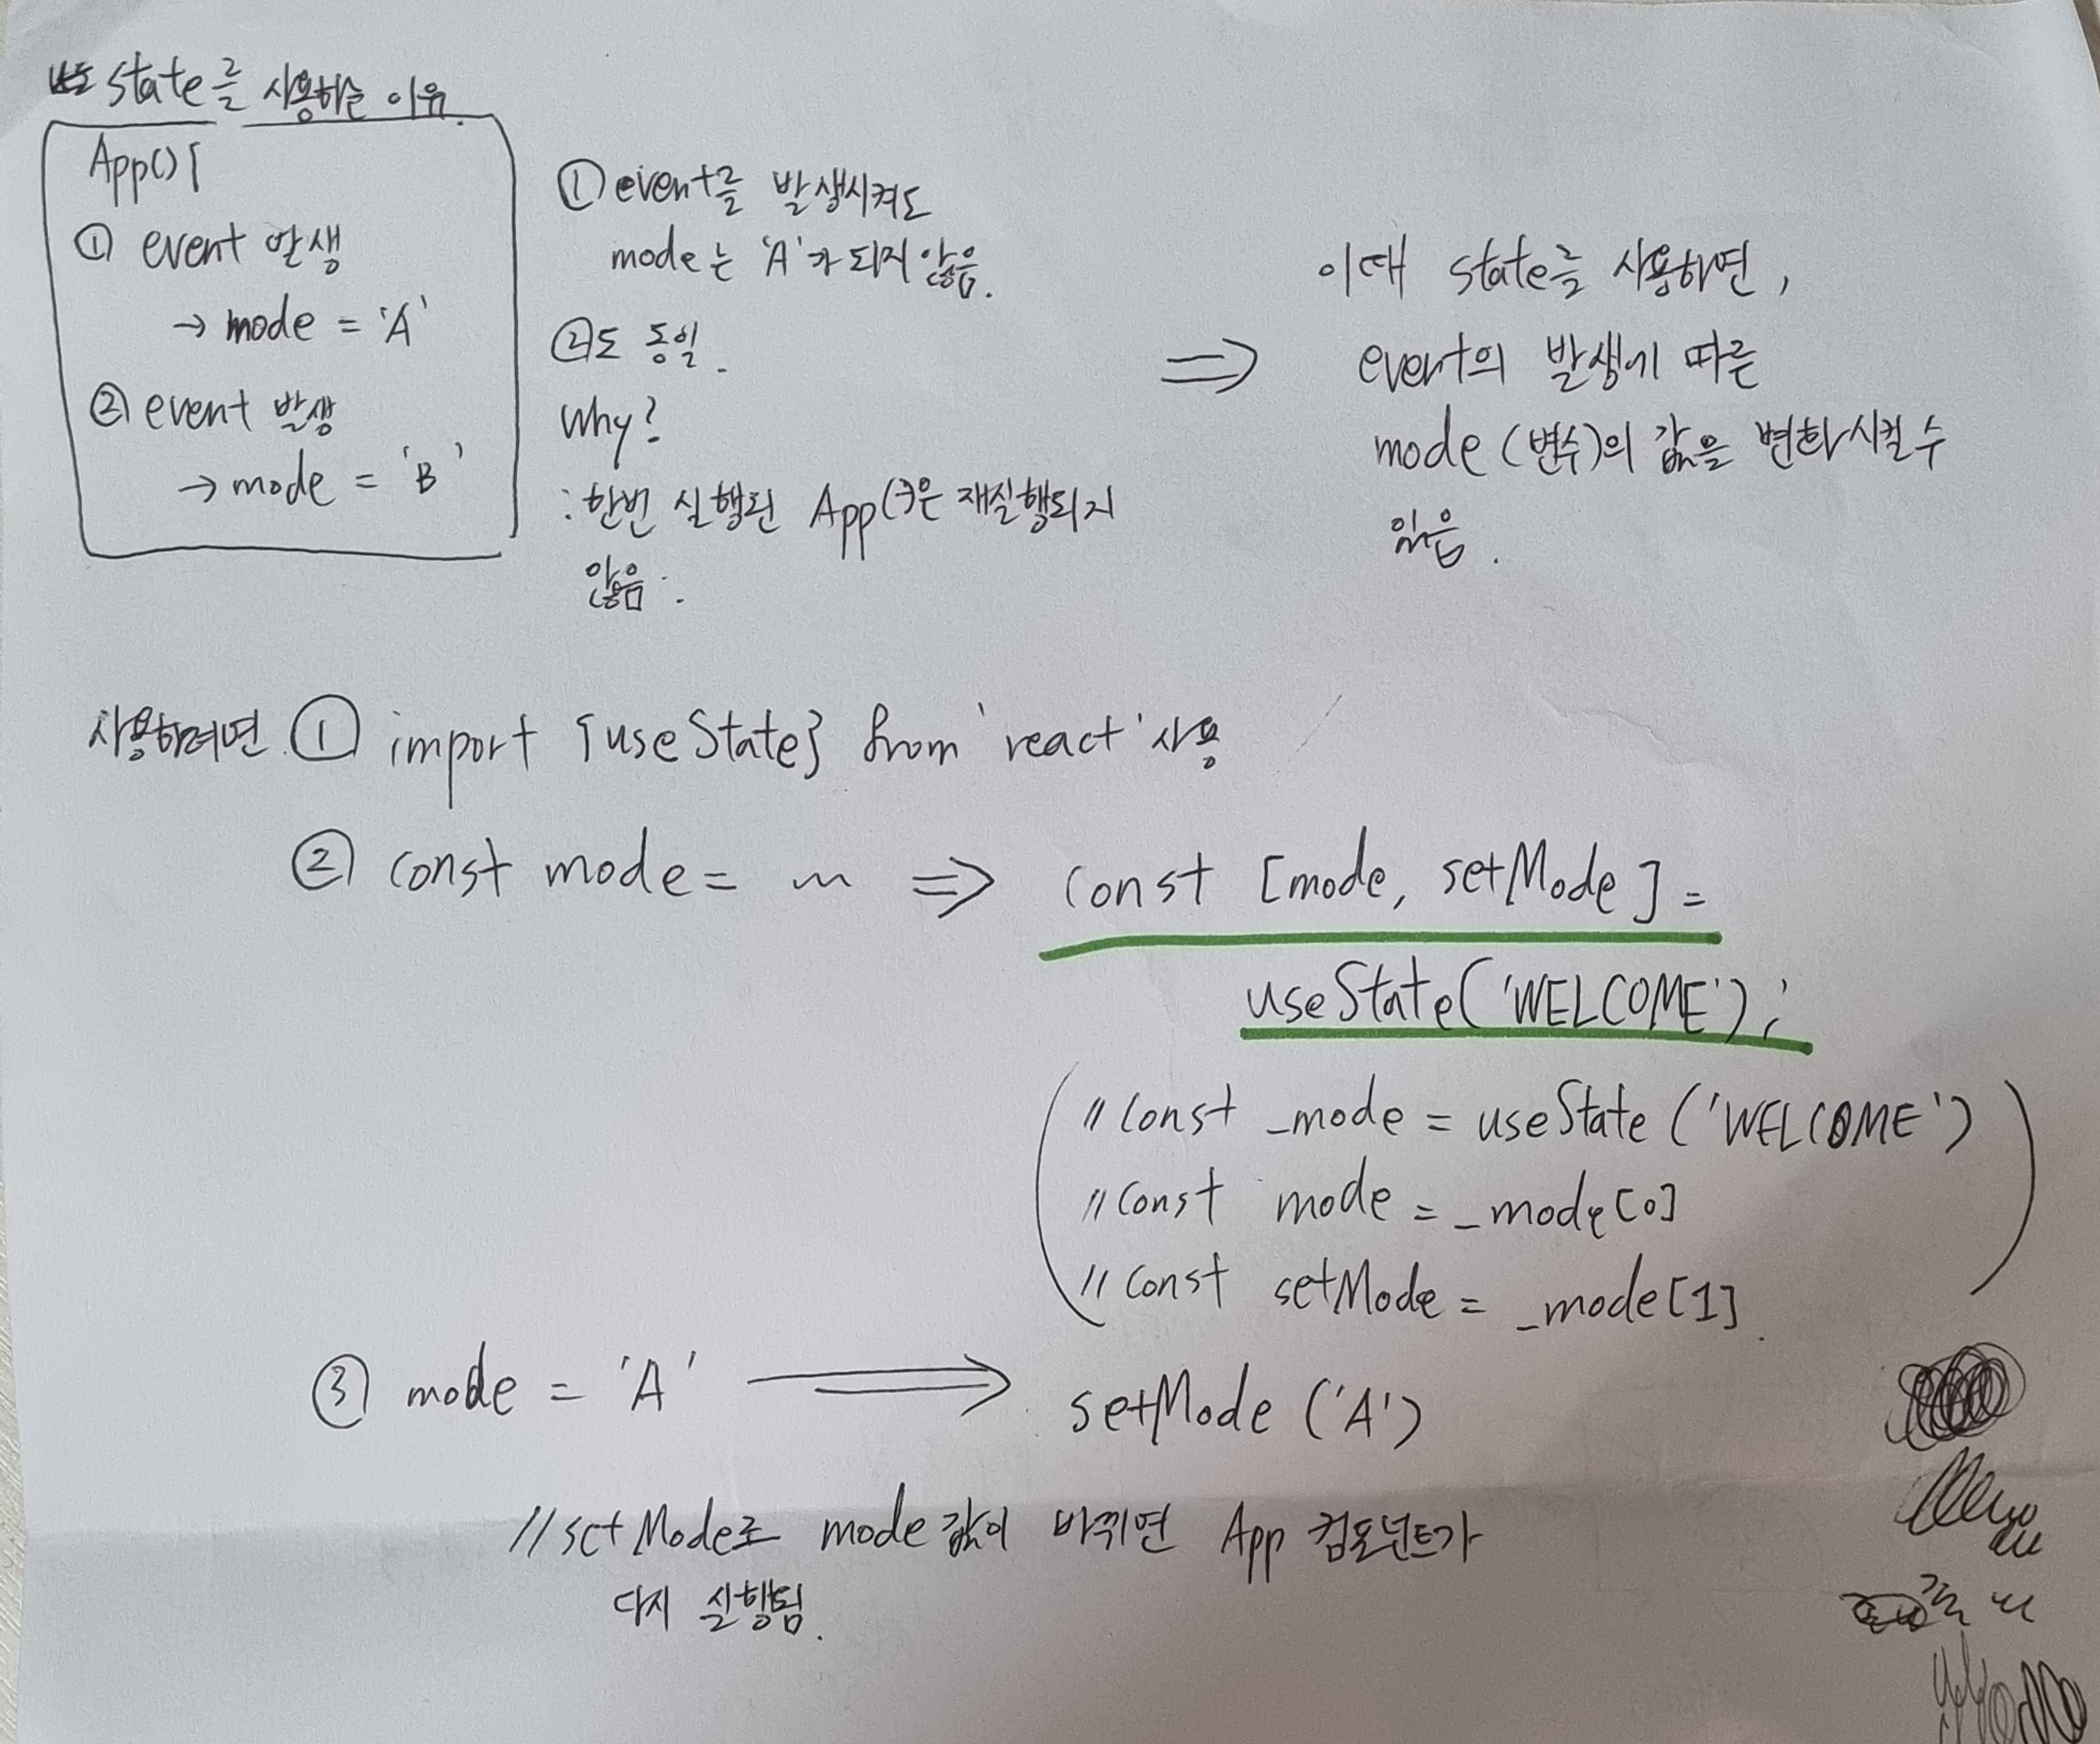 state를 사용하는 이유.
App(){
① event 발생
→ mode = 'A'
② event 발생
→ mode = 'B'
① event를 발생시켜도
mode는 'A'가 되지 않음.
②도 동일.
Why?
: 한번 실행된 App()은 재실행되지
않음.
⇒
이때 state를 사용하면,
event의 발생에 따른
mode (변수)의 값을 변화시킬 수
있음.
사용하려면 ① import {useState} from 'react' 사용
② const mode = ~ ⇒ const [mode, setMode] =
useState('WELCOME');
// const _mode = useState ('WELCOME')
// const mode = _mode[0]
// const setMode = _mode[1].
③ mode = 'A' ⇒ setMode ('A')
// setMode로 mode 값이 바뀌면 App 컴포넌트가
다시 실행됨.